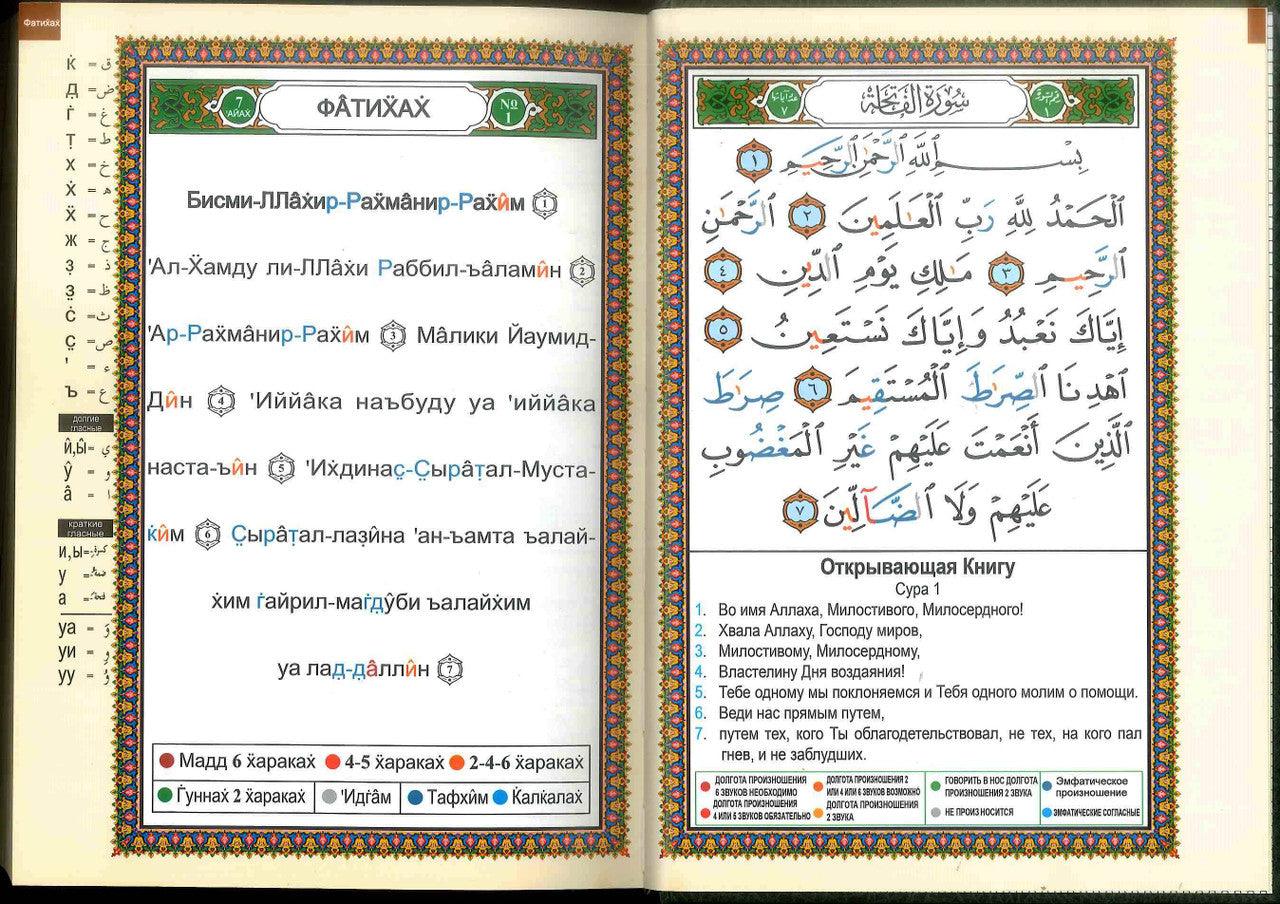 Фатиӿаӿ
ќ = ق
д̣ = ض
ѓ = غ
т̣ = ط
х = خ
х̇ = ه
х̈ = ح
ж = ج
з̣ = ذ
з̤ = ظ
с̇ = ث
с̤ = ص
' = ء
ъ = ع
долгие
гласные
и̂,ы̂ = ي
у̂ = و
а̂ = ا
краткие
гласные
и,ы = كسرة
у = ضمة
а = فتحة
уа = وَ
уи = وِ
уу = وُ
7
'АЙАХ̇
ФА̂ТИХ̈АХ̇
№
1
Бисми-ЛЛа̂х̇ир-Рах̈ма̂нир-Рах̈и̂м 1
'Ал-Х̈амду ли-ЛЛа̂х̇и Раббил-ъа̂лами̂н 2
'Ар-Рах̈ма̂нир-Рах̈и̂м 3 Ма̂лики Йаумид-
Ди̂н 4 'Иййа̂ка наъбуду уа 'иййа̂ка
наста-ъи̂н 5 'Их̇динас̤-С̤ыра̂т̣ал-Муста-
к̇и̂м 6 С̤ыра̂т̣ал-лаз̣и̂на 'ан-ъамта ъалай-
х̇им г̇айрил-маг̇д̣у̂би ъалайх̇им
уа лад̣-д̣а̂лли̂н 7
Мадд 6 х̈араках̇ 4-5 х̈араках̇ 2-4-6 х̈араках̇
Г̇уннах̇ 2 х̈араках̇ 'Идг̇а̂м Тафхи̂м К̇алк̇алах̇
عدد آياتها
٧
سُورَةُ الْفَاتِحَةِ
رقم السورة
١
بِسْمِ ٱللَّهِ ٱلرَّحْمَٰنِ ٱلرَّحِيمِ ١
ٱلْحَمْدُ لِلَّهِ رَبِّ ٱلْعَٰلَمِينَ ٢ ٱلرَّحْمَٰنِ
ٱلرَّحِيمِ ٣ مَٰلِكِ يَوْمِ ٱلدِّينِ ٤
إِيَّاكَ نَعْبُدُ وَإِيَّاكَ نَسْتَعِينُ ٥
ٱهْدِنَا ٱلصِّرَٰطَ ٱلْمُسْتَقِيمَ ٦ صِرَٰطَ
ٱلَّذِينَ أَنْعَمْتَ عَلَيْهِمْ غَيْرِ ٱلْمَغْضُوبِ
عَلَيْهِمْ وَلَا ٱلضَّآلِّينَ ٧
Открывающая Книгу
Сура 1
1. Во имя Аллаха, Милостивого, Милосердного!
2. Хвала Аллаху, Господу миров,
3. Милостивому, Милосердному,
4. Властелину Дня воздаяния!
5. Тебе одному мы поклоняемся и Тебя одного молим о помощи.
6. Веди нас прямым путем,
7. путем тех, кого Ты облагодетельствовал, не тех, на кого пал
гнев, и не заблудших.
ДОЛГОТА ПРОИЗНОШЕНИЯ
6 ЗВУКОВ НЕОБХОДИМО
ДОЛГОТА ПРОИЗНОШЕНИЯ
4 ИЛИ 6 ЗВУКОВ ОБЯЗАТЕЛЬНО
ДОЛГОТА ПРОИЗНОШЕНИЯ 2
ИЛИ 4 ИЛИ 6 ЗВУКОВ ВОЗМОЖНО
ДОЛГОТА ПРОИЗНОШЕНИЯ
2 ЗВУКА
ГОВОРИТЬ В НОС ДОЛГОТА
ПРОИЗНОШЕНИЯ 2 ЗВУКА
НЕ ПРОИЗНОСИТСЯ
Эмфатическое
произношение
ЭМФАТИЧЕСКИЕ СОГЛАСНЫЕ